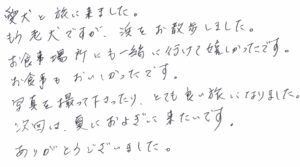 愛犬と旅に来ました。
もう老犬ですが、浜をお散歩しました。
お食事場所にも一緒に行けて嬉しかったです。
お食事もおいしかったです。
写真を撮って下さったり、とても良い旅になりました。
次回は、夏におよぎに来たいです。
ありがとうございました。